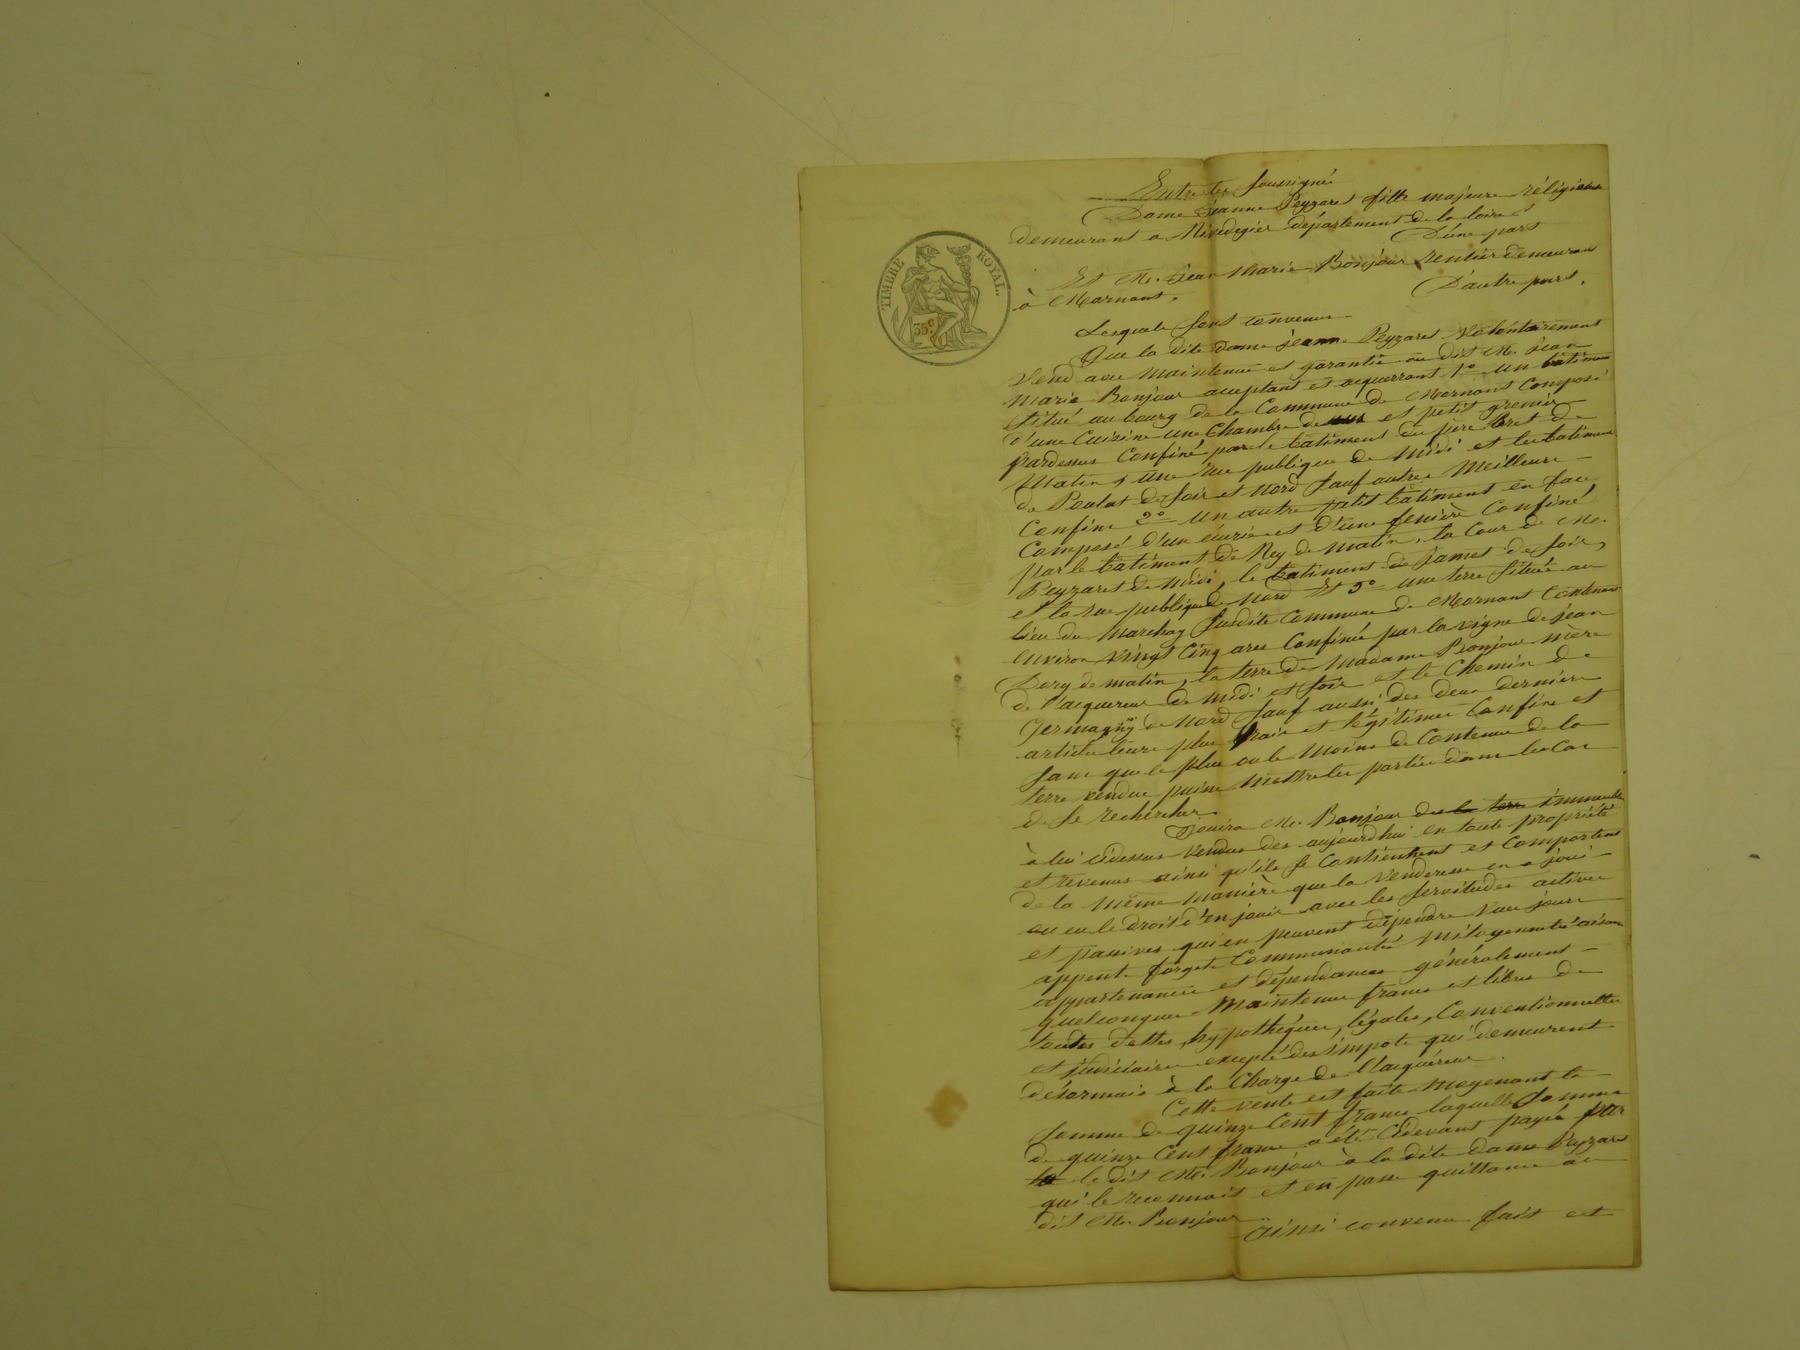 TIMBRE ROYAL.
35.c
Entre les soussignés
Dame Jeanne Peyzaret fille majeure réligieuse
demeurant a Rivedegier département de la loire
D'une part
Et Mr. Jean Marie Bonjour rentier demeurant
à Mornant.
D'autre part.
Lesquels sont convenus
Que la dite dame jeanne Peyzaret volontairement
vend avec maintenue et garantie au dit Mr. jean
marie Bonjour acceptant et acquerrant 1o un bâtiment
situé au bourg de la Commune de Mornant Composé
d'une Cuisine une Chambre de et petit grenier
pardessus Confiné par le bâtiment du pere Bret de
matin, une rue publique de midi et les batiments
de Poulat de soir et nord sauf autres meilleurs
Confins 2o un autre petit bâtiment en face
Composé d'un écurie et d'une feniere Confiné
par le bâtiment de Rey de matin, la Cour de Me.
Peyzaret de midi, le batiment de James de soir,
et la rue publique de nord Et 3o une terre située au
lieu du Marchay susdite Commune de Mornant Contenant
environ vingt cinq ares Confinée par la vigne de jean
Dory de matin, la terre de Madame Bonjour mère
de l'acquereur de midi et soir et le Chemin de
Germagny de nord sauf aussi des deux derniers
articles leurs plus vrais et légitimes Confins et
sans que le plus ou le moins de Contenue de la
terre vendue puisse mettre les parties dans le Cas
de se rechercher.
Jouira Mr. Bonjour des la terre immeubles
à lui cidessus vendus des aujourd'hui en toute propriété
et revenus ainsi qu'ils se Contiennent et Comportent
de la même manière que la venderesse en a joui
ou eu le droit d'en jouir avec les servitudes actives
et passives qui en peuvent dépendre vues jours
appents forgets Communauté mitoyenneté aisances
appartenances et dépendances généralement
quelconques Maintenue francs et libres de
toutes dettes, hypothéques, légales, Conventionnelles
et judiciaires excepté des impots qui demeurent
désormais à la Charge de l'acquéreur.
Cette vente est faite moyenant la
somme de quinze Cent francs laquelle somme
de quinze Cent francs a été Cidevant payée par
le dit Mr. Bonjour à la dite dame Peyzaret
qui le reconnait et en passe quittance au
dit Mr. Bonjour.
Ainsi convenu fait et